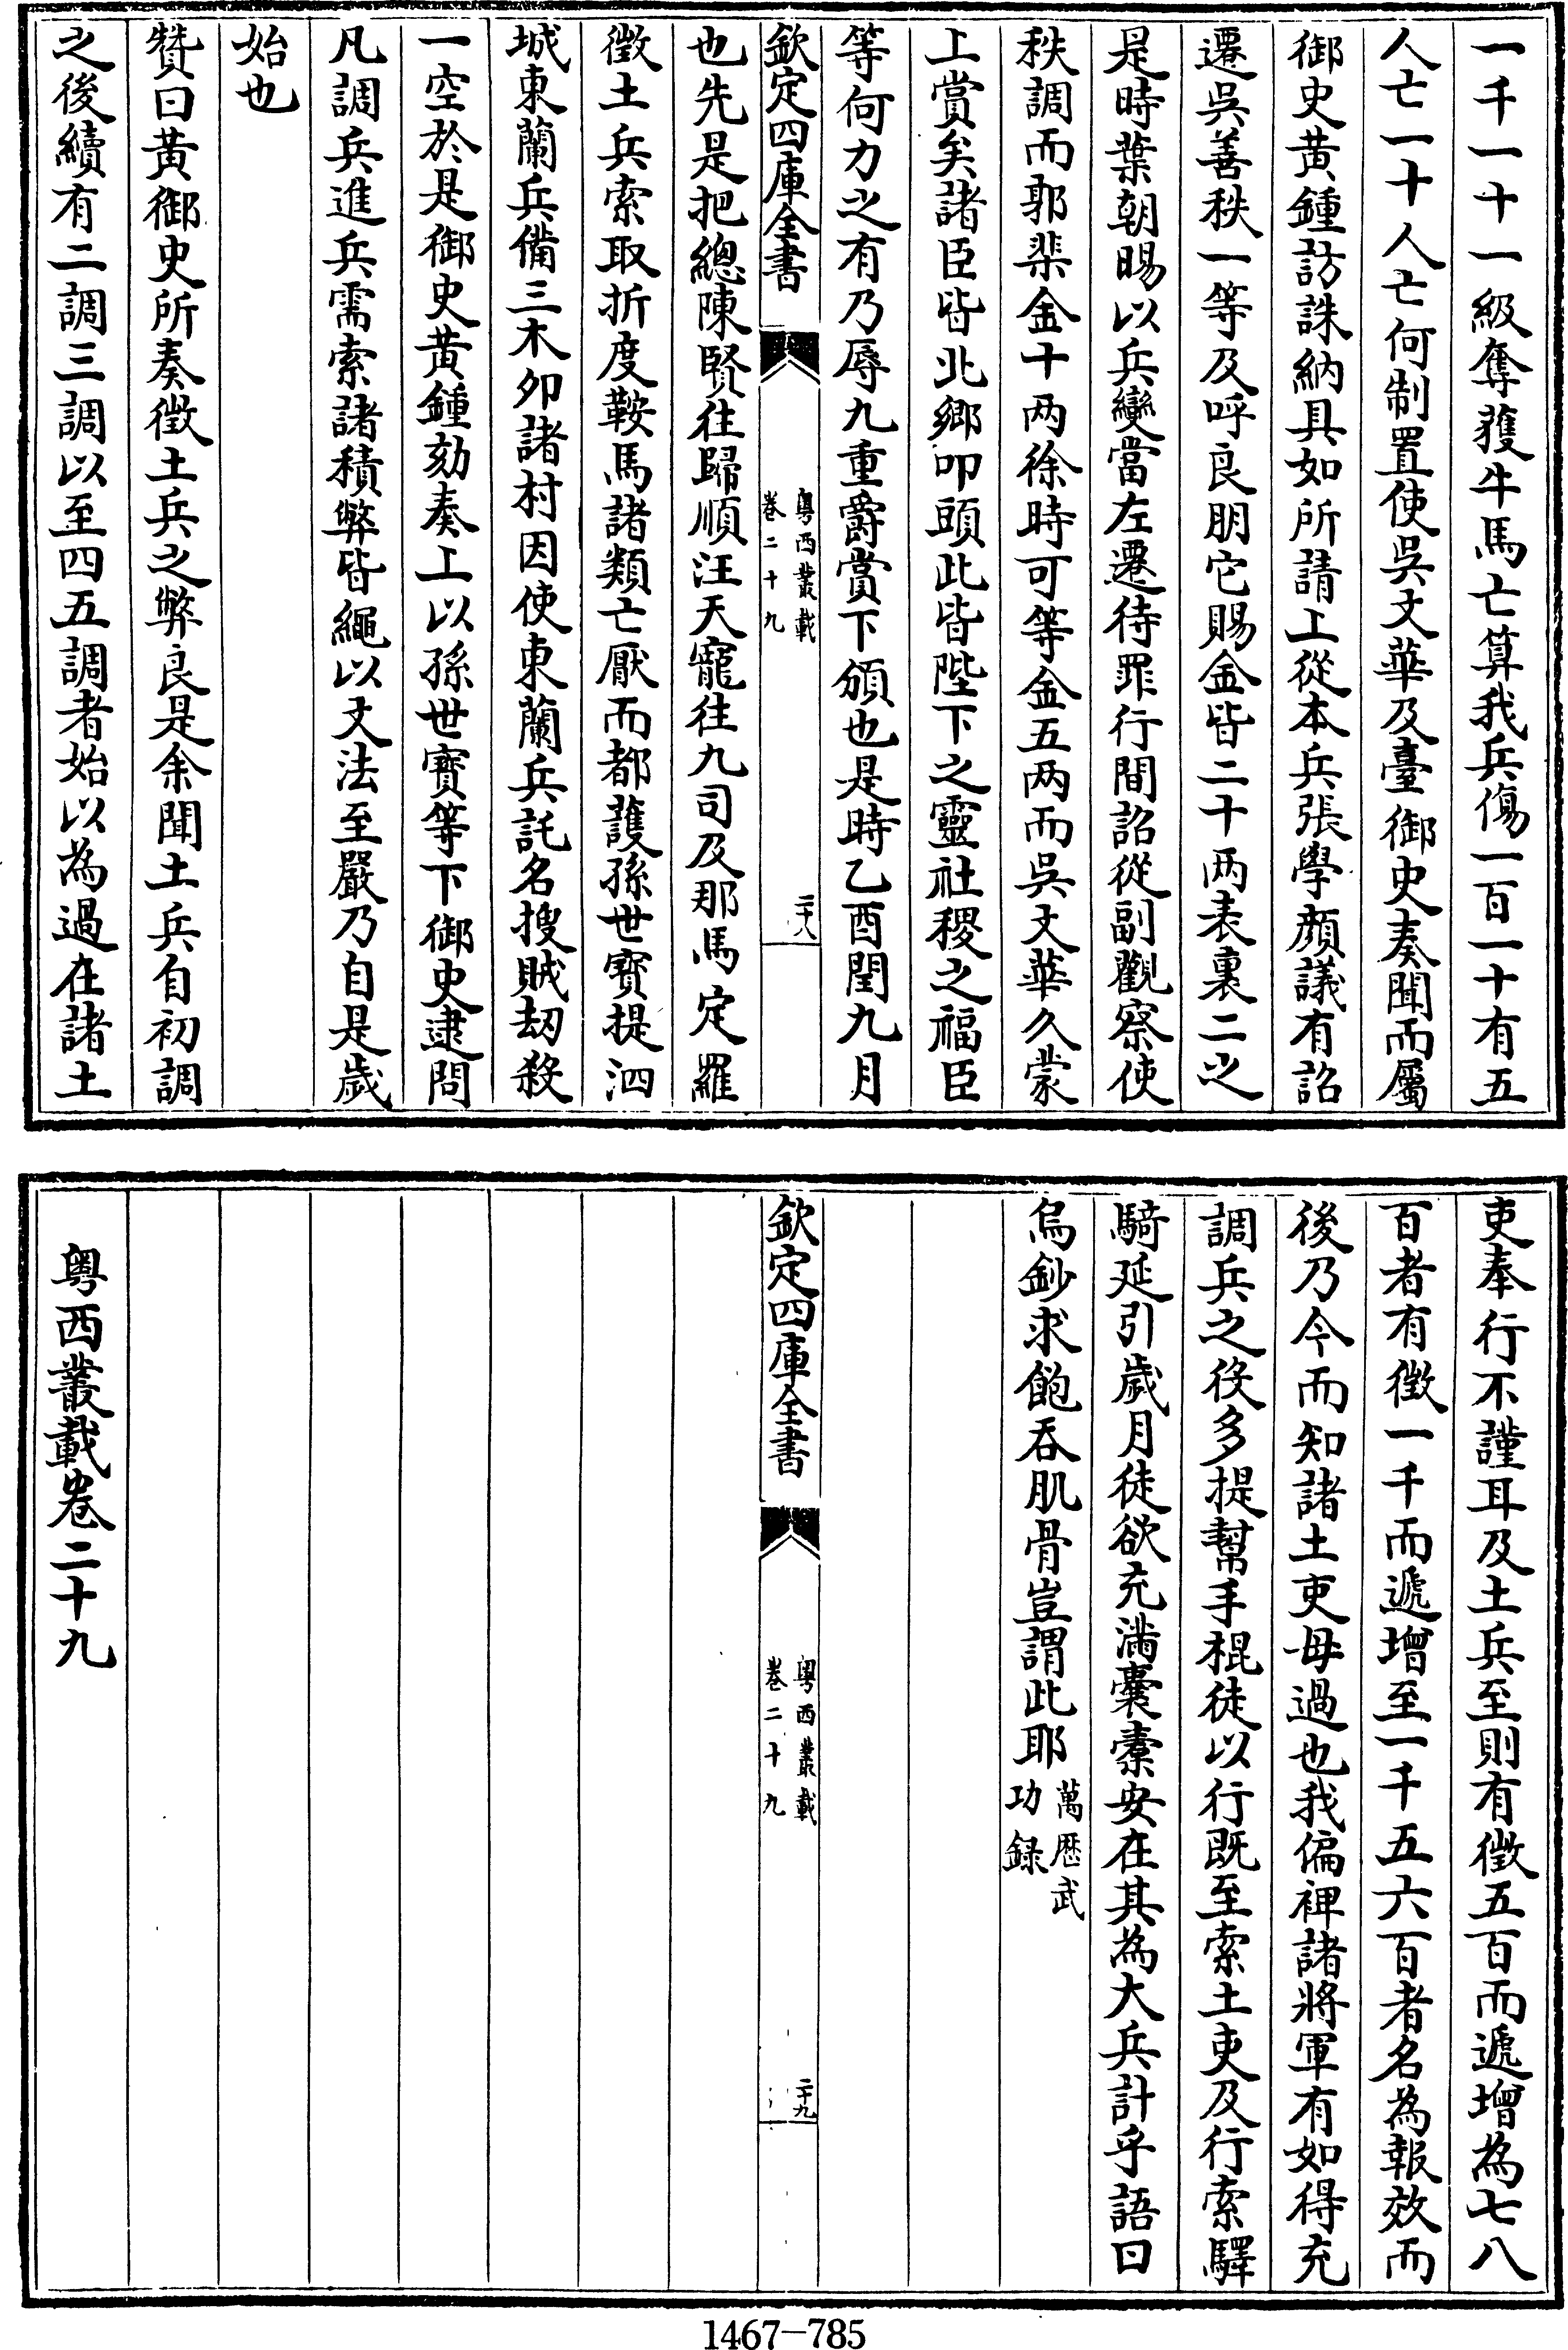 一千一十一級奪獲牛馬亡算我兵傷一百一十有五
人亡一十人亡何制置使吳文華及臺御史奏聞而屬
御史黄鍾訪誅納具如所請上從本兵張學顔議有詔
遷吳善秩一等及呼良朋它賜金皆二十两表裏二之
是時葉朝暘以兵變當左遷待罪行間詔從副觀察使
秩調而郭棐金十两徐時可等金五两而吳文華久蒙
上賞矣諸臣皆北鄉叩頭此皆陛下之靈社稷之福臣
等何力之有乃辱九重爵賞下頒也是時乙酉閏九月
欽定四庫全書
粤西叢載
卷二十九
二十八
也先是把總陳賢往歸順汪天寵往九司及那馬定羅
徵土兵索取折度鞍馬諸類亡厭而都護孫世寳提泗
城東蘭兵備三木夘諸村因使東蘭兵託名搜賊刼殺
一空於是御史黄鍾劾奏上以孫世寳等下御史逮問
凡調兵進兵需索諸積弊皆繩以文法至嚴乃自是歲
始也
贊曰黄御史所奏徵土兵之弊良是余聞土兵自初調
之後續有二調三調以至四五調者始以為過在諸土
吏奉行不謹耳及土兵至則有徵五百而遞增為七八
百者有徵一千而遞增至一千五六百者名為報效而
後乃今而知諸土吏毋過也我偏裨諸將軍有如得充
調兵之役多提幫手棍徒以行既至索土吏及行索驛
騎延引歲月徒欲充滿囊橐安在其為大兵計乎語曰
烏鈔求飽吞肌骨豈謂此耶
萬歴武
功録
欽定四庫全書
粤西叢載
卷二十九
二十九
粤西叢載卷二十九
1467-785